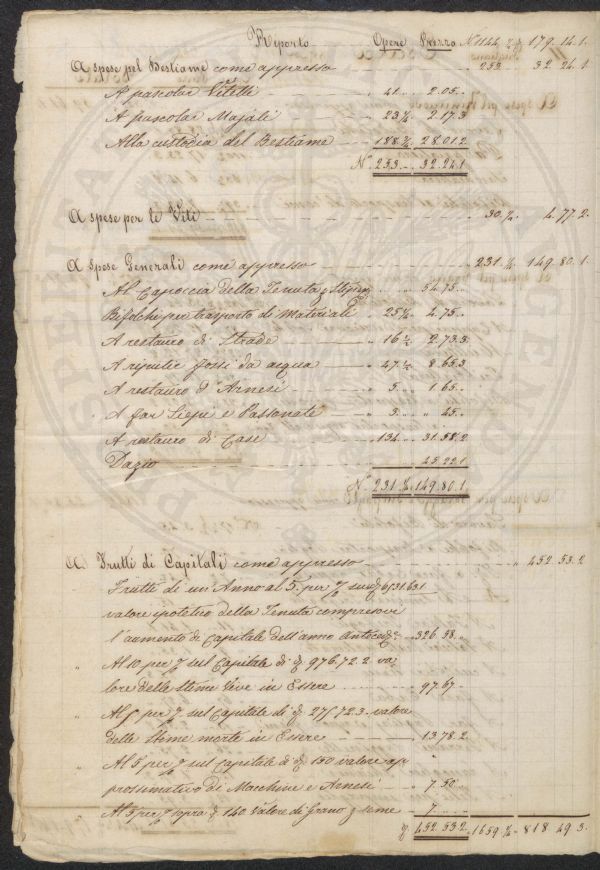 Riporto Opere Prezzo N 1144 ½ 179. 14. 1.
A spese pel Bestiame come appresso 253 32 24. 1
A pascolar Vitelli 41 2. 05
A pascolar Majali 23 ½ 2. 17. 3
Alla custodia del Bestiame 188 ½ 28. 01. 2
N. 253 32. 24. 1
A spese per le Viti 30. ½ 4. 77. 2.
A spese Generali come appresso 231. ½ 149. 80. 1.
Al Capoccia della Tenuta 54. 75
Bifolchi per trasporto di Materiali 25 ½ 4. 75
A restauro di Strade 16 ½ 2. 73. 3
A ripulir fossi da acqua 47 ½ 8. 65. 3
A restauro d'Arnesi 5 1 65
A far Siepi e Passonate 3 45
A restauro di Case 134 31. 58. 2
Dazio 45. 22. 1
N. 231. ½ 149. 80. 1
A Frutti di Capitali come appresso 452. 53. 2
Frutti di un'Anno al 5. per 6531. 63. 1
valore ipotetico della Tenuta compresovi
l'aumento di Capitale dell'anno 326. 58
Al 10 per sul Capitale di 976. 72. 2 va
lore delle Stime Vive in Essere 97. 67
Al 5 per sul Capitale di 275. 72. 3 valore
delle Stime morte in Essere 13. 78. 2
Al 5 per sul Capitale di 150 valore ap
prossimativo di Macchine e Arnesi 7. 50
Al 5 per sopra 140 Valore di Grano seme 7
452. 53. 2 1659. ½ 818 49. 3.